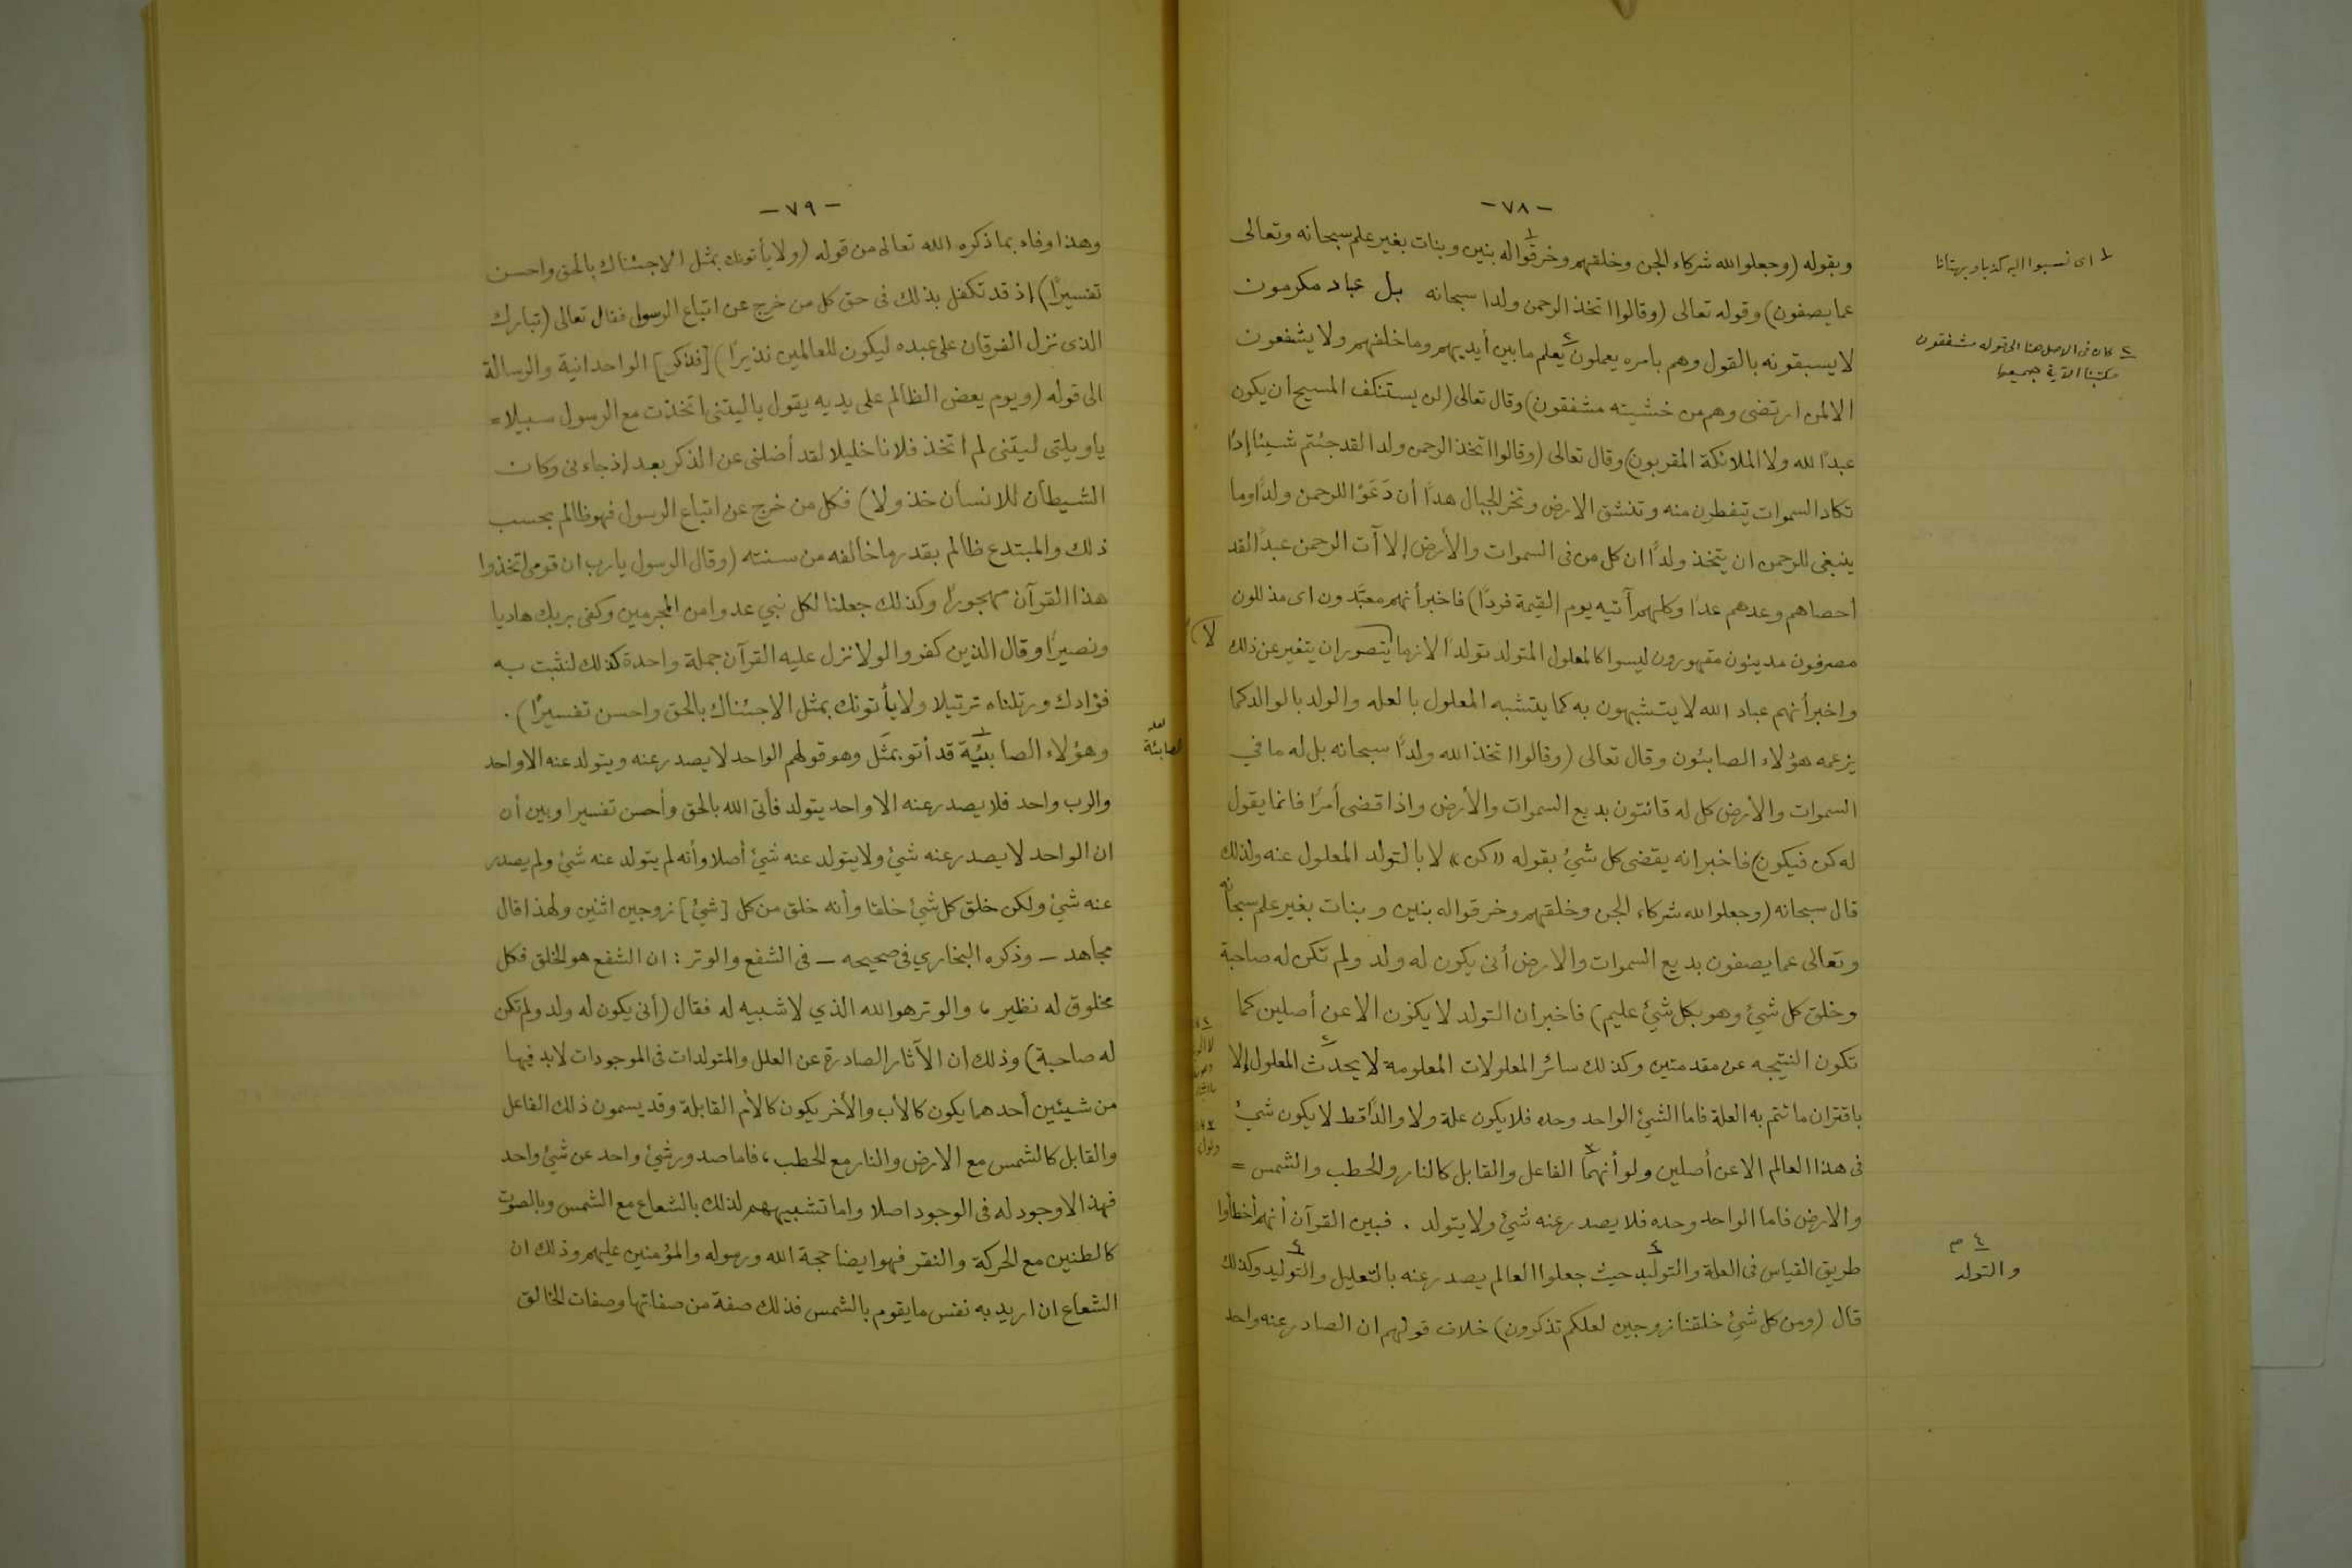 - ٧٨ -
وبقوله (وجعلوا لله شركاء الجن وخلقهم وخرقوا١ له بنين وبنات بغير علم سبحانه وتعالى
عما يصفون) وقوله تعالى (وقالوا اتخذ الرحمن ولدا سبحانه بل عباد مكرمون
لا يسبقونه بالقول وهم بامره يعملون٢ يعلم ما بين أيديهم وما خلفهم ولا يشفعون
الا لمن ارتضى وهم من خشيته مشفقون) وقال تعالى (لن يستنكف المسيح أن يكون
عبدًا لله ولا الملائكة المقربون) وقال تعالى (وقالوا اتخذ الرحمن ولدا لقد جئتم شيئا إدًا
تكاد السموات يتفطرن منه وتنشق الارض وتخر الجبال هدًا أن دَعَوْا للرحمن ولدًا وما
ينبغي للرحمن ان يتخذ ولدًا ان كل من فى السموات والأرض إلا آت الرحمن عبدًا لقد
أحصاهم وعدهم عدًا وكلهم آتيه يوم القيمة فردًا) فاخبر أنهم معبَّدون اى مذللون
مصرفون مدينون مقهورون ليسوا كالمعلول المتولد تولدًا لازما يتصور ان يتغير عن ذلك
واخبر أنهم عباد الله لا يتشبهون به كما يتشبه المعلول بالعله والولد بالوالد كما
يزعمه هؤلاء الصابئون وقال تعالى (وقالوا اتخذ الله ولدًا سبحانه بل له ما في
السموات والأرض كل له قانتون بديع السموات والأرض واذا قضى أمرًا فانما يقول
له كن فيكون) فاخبر انه يقضى كل شيئ بقوله «كن» لا بالتولد المعلول عنه ولذلك
قال سبحانه (وجعلوا لله شركاء الجن وخلقهم وخرقوا له بنين وبنات بغير علم سبحانه
وتعالى عما يصفون بديع السموات والارض أنى يكون له ولد ولم تكن له صاحبة
وخلق كل شيئ وهو بكل شيئ عليم) فاخبر ان التولد لا يكون الا عن أصلين كما
تكون النتيجه عن مقدمتين وكذلك سائر المعلولات المعلومة٢ لا يحدث المعلول إلا
باقتران ما تتم به العلة فاما الشيئ الواحد وحده فلا يكون علة ولا والدًا قط لا يكون شيئ
فى هذا العالم الا عن أصلين ولو أنهما٣ الفاعل والقابل كالنار والحطب والشمس =
والارض فاما الواحد وحده فلا يصدر عنه شيئ ولا يتولد . فبين القرآن أنهم أخطأوا
طريق القياس فى العلة والتوليد٤ حيث جعلوا العالم يصدر عنه بالتعليل والتوليد٤ وكذلك
قال (ومن كل شيئ خلقنا زوجين لعلكم تذكرون) خلاف قولهم ان الصادر عنه واحد
١ اى نسبوا اليه كذبا وبهتانا
٢ كان فى الاصل هنا الى قوله مشفقون
فكتبنا الآية جميعها
لا
٤ م
والتولد
- ٧٩ -
وهذا وفاء بما ذكره الله تعالى من قوله (ولا يأتونك بمثل الا جئناك بالحق واحسن
تفسيرًا) إذ قد تكفل بذلك فى حق كل من خرج عن اتباع الرسول فقال تعالى (تبارك
الذى نزل الفرقان على عبده ليكون للعالمين نذيرًا) [فذكر] الواحدانية والرسالة
الى قوله (ويوم يعض الظالم على يديه يقول يا ليتنى اتخذت مع الرسول سبيلا =
ياويلتى ليتنى لم اتخذ فلانا خليلا لقد أضلنى عن الذكر بعد إذ جاءنى وكان
الشيطان للانسان خذولا) فكل من خرج عن اتباع الرسول فهو ظالم بحسب
ذلك والمبتدع ظالم بقدر ما خالفه من سنته (وقال الرسول يارب ان قومى اتخذوا
هذا القرآن مهجورًا وكذلك جعلنا لكل نبي عدوا من المجرمين وكفى بربك هاديا
ونصيرًا وقال الذين كفروا لولا نزل عليه القرآن جملة واحدة كذلك لنثبت به
فؤادك ورتلناه ترتيلا ولا يأتونك بمثل الا جئناك بالحق واحسن تفسيرًا) .
وهؤلاء الصابئيّة١ قد أتو بمثَل وهو قولهم الواحد لا يصدر عنه ويتولد عنه الا واحد
والرب واحد فلا يصدر عنه الا واحد يتولد فأتى الله بالحق وأحسن تفسيرا وبين أن
ان الواحد لا يصدر عنه شيئ ولا يتولد عنه شيئ أصلا وأنه لم يتولد عنه شيئ ولم يصدر
عنه شيئ ولكن خلق كل شيئ خلقا وأنه خلق من كل [شيئ] زوجين اثنين ولهذا قال
مجاهد - وذكره البخاري فى صحيحه - فى الشفع والوتر : ان الشفع هو الخلق فكل
مخلوق له نظير ، والوتر هو الله الذي لا شبيه له فقال (أنى يكون له ولد ولم تكن
له صاحبة) وذلك أن الآثار الصادرة عن العلل والمتولدات فى الموجودات لابد فيها
من شيئين أحدهما يكون كالأب والأخر يكون كالأم القابلة وقد يسمون ذلك الفاعل
والقابل كالشمس مع الارض والنار مع الحطب ، فاما صدور شيئ واحد عن شيئ واحد
فهذا لا وجود له فى الوجود اصلا واما تشبيههم لذلك بالشعاع مع الشمس وبالصوت
كالطنين مع الحركة والنقر فهو ايضا حجة الله ورسوله والمؤمنين عليهم وذلك ان
الشعاع ان اريد به نفس ما يقوم بالشمس فذلك صفة من صفاتها وصفات الخالق
لعله
الصابئة